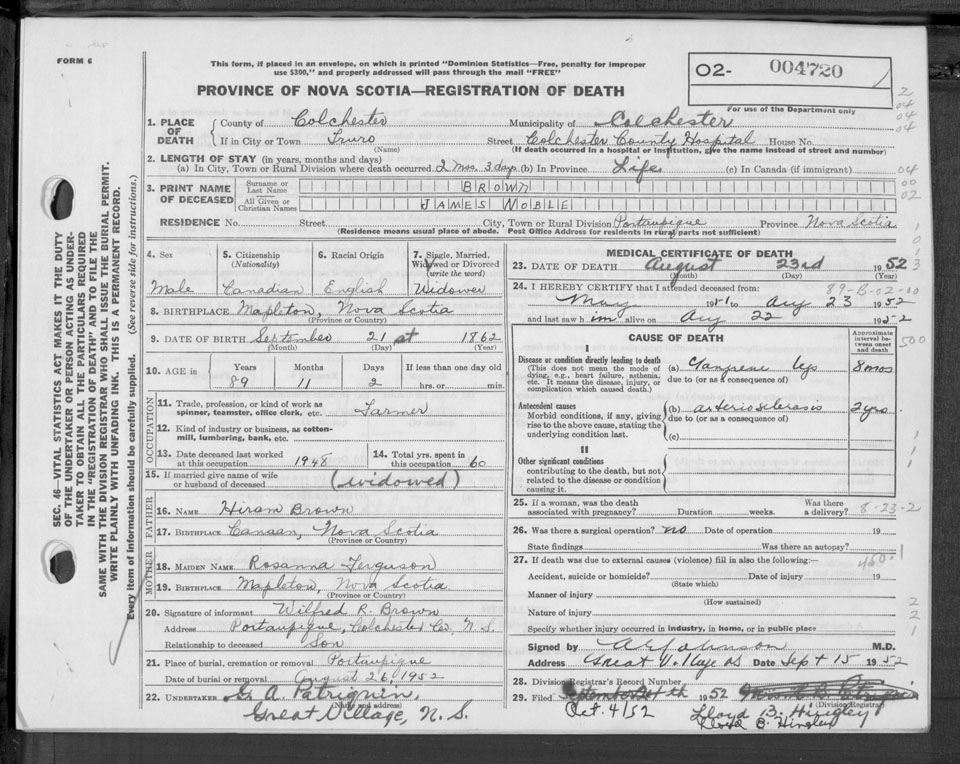 FORM 6
This form, if placed in an envelope, on which is printed "Dominion Statistics—Free, penalty for improper
use $300," and properly addressed will pass through the mail "FREE"
02- 004720
For use of the Department only
PROVINCE OF NOVA SCOTIA—REGISTRATION OF DEATH
1. PLACE OF DEATH
County of Colchester Municipality of Colchester
If in City or Town Truro Street Colchester County Hospital House No.
(Name) (If death occurred in a hospital or institution, give the name instead of street and number)
2. LENGTH OF STAY (in years, months and days)
(a) In City, Town or Rural Division where death occurred 2 mos. 3 days (b) In Province Life (c) In Canada (if immigrant)
3. PRINT NAME OF DECEASED
Surname or Last Name BROWN
All Given or Christian Names JAMES MOBLE
RESIDENCE No. Street City, Town or Rural Division Portaupique Province Nova Scotia
(Residence means usual place of abode. Post Office Address for residents in rural parts not sufficient)
4. Sex
Male
5. Citizenship
(Nationality)
Canadian
6. Racial Origin
English
7. Single, Married,
Widowed or Divorced
(write the word)
Widower
8. BIRTHPLACE Mapleton, Nova Scotia
(Province or Country)
9. DATE OF BIRTH September 21st 1862
(Month) (Day) (Year)
10. AGE is Years Months Days If less than one day old
89 11 2 hrs. or min.
OCCUPATION
11. Trade, profession, or kind of work as
spinner, teamster, office clerk, etc. Farmer
12. Kind of industry or business, as cotton-
mill, lumbering, bank, etc.
13. Date deceased last worked
at this occupation 1948
14. Total yrs. spent in
this occupation 60
15. If married give name of wife
or husband of deceased (widowed)
FATHER
16. NAME Hiram Brown
17. BIRTHPLACE Canaan, Nova Scotia
(Province or Country)
MOTHER
18. MAIDEN NAME Rosanna Ferguson
19. BIRTHPLACE Mapleton, Nova Scotia
(Province or Country)
20. Signature of informant Wilfred R. Brown
Address Portaupique, Colchester Co., N. S.
Relationship to deceased Son
21. Place of burial, cremation or removal Portaupique
Date of burial or removal August 26, 1952
22. UNDERTAKER G. A. Patriquin,
(Name and address)
Great Village, N. S.
MEDICAL CERTIFICATE OF DEATH
23. DATE OF DEATH August 23rd 1952
(Month) (Day) (Year)
89-B-02-00
24. I HEREBY CERTIFY that I attended deceased from:
May 1951 to Aug 23 1952
and last saw him alive on Aug 22 1952
CAUSE OF DEATH
Approximate
interval be-
tween onset
and death
I
Disease or condition directly leading to death
(This does not mean the mode of
dying, e.g., heart failure, asthenia,
etc. It means the disease, injury, or
complication which caused death.)
(a) Gangrene legs 8 mos
due to (or as a consequence of)
Antecedent causes
Morbid conditions, if any, giving
rise to the above cause, stating the
underlying condition last.
(b) arteriosclerosis 2 yrs
due to (or as a consequence of)
(c)
II
Other significant conditions
contributing to the death, but not
related to the disease or condition
causing it.
25. If a woman, was the death
associated with pregnancy? Duration weeks.
Was there
a delivery?
8-23-2
26. Was there a surgical operation? no Date of operation 19
State findings Was there an autopsy?
27. If death was due to external causes (violence) fill in also the following:—
Accident, suicide or homicide? Date of injury 19
(State which)
Manner of injury
(How sustained)
Nature of injury
Specify whether injury occurred in industry, in home, or in public place
Signed by M.D.
Address Great Village NS Date Sept 15 1952
28. Division Registrar's Record Number
29. Filed 1952
(Division Registrar)
Oct. 4/52 Lloyd B. Hingley
Lloyd B. Hingley
SEC. 46—VITAL STATISTICS ACT MAKES IT THE DUTY
OF THE UNDERTAKER OR PERSON ACTING AS UNDER-
TAKER TO OBTAIN ALL THE PARTICULARS REQUIRED
IN THE "REGISTRATION OF DEATH" AND TO FILE THE
SAME WITH THE DIVISION REGISTRAR WHO SHALL ISSUE THE BURIAL PERMIT.
WRITE PLAINLY WITH UNFADING INK. THIS IS A PERMANENT RECORD.
Every item of information should be carefully supplied. (See reverse side for instructions.)